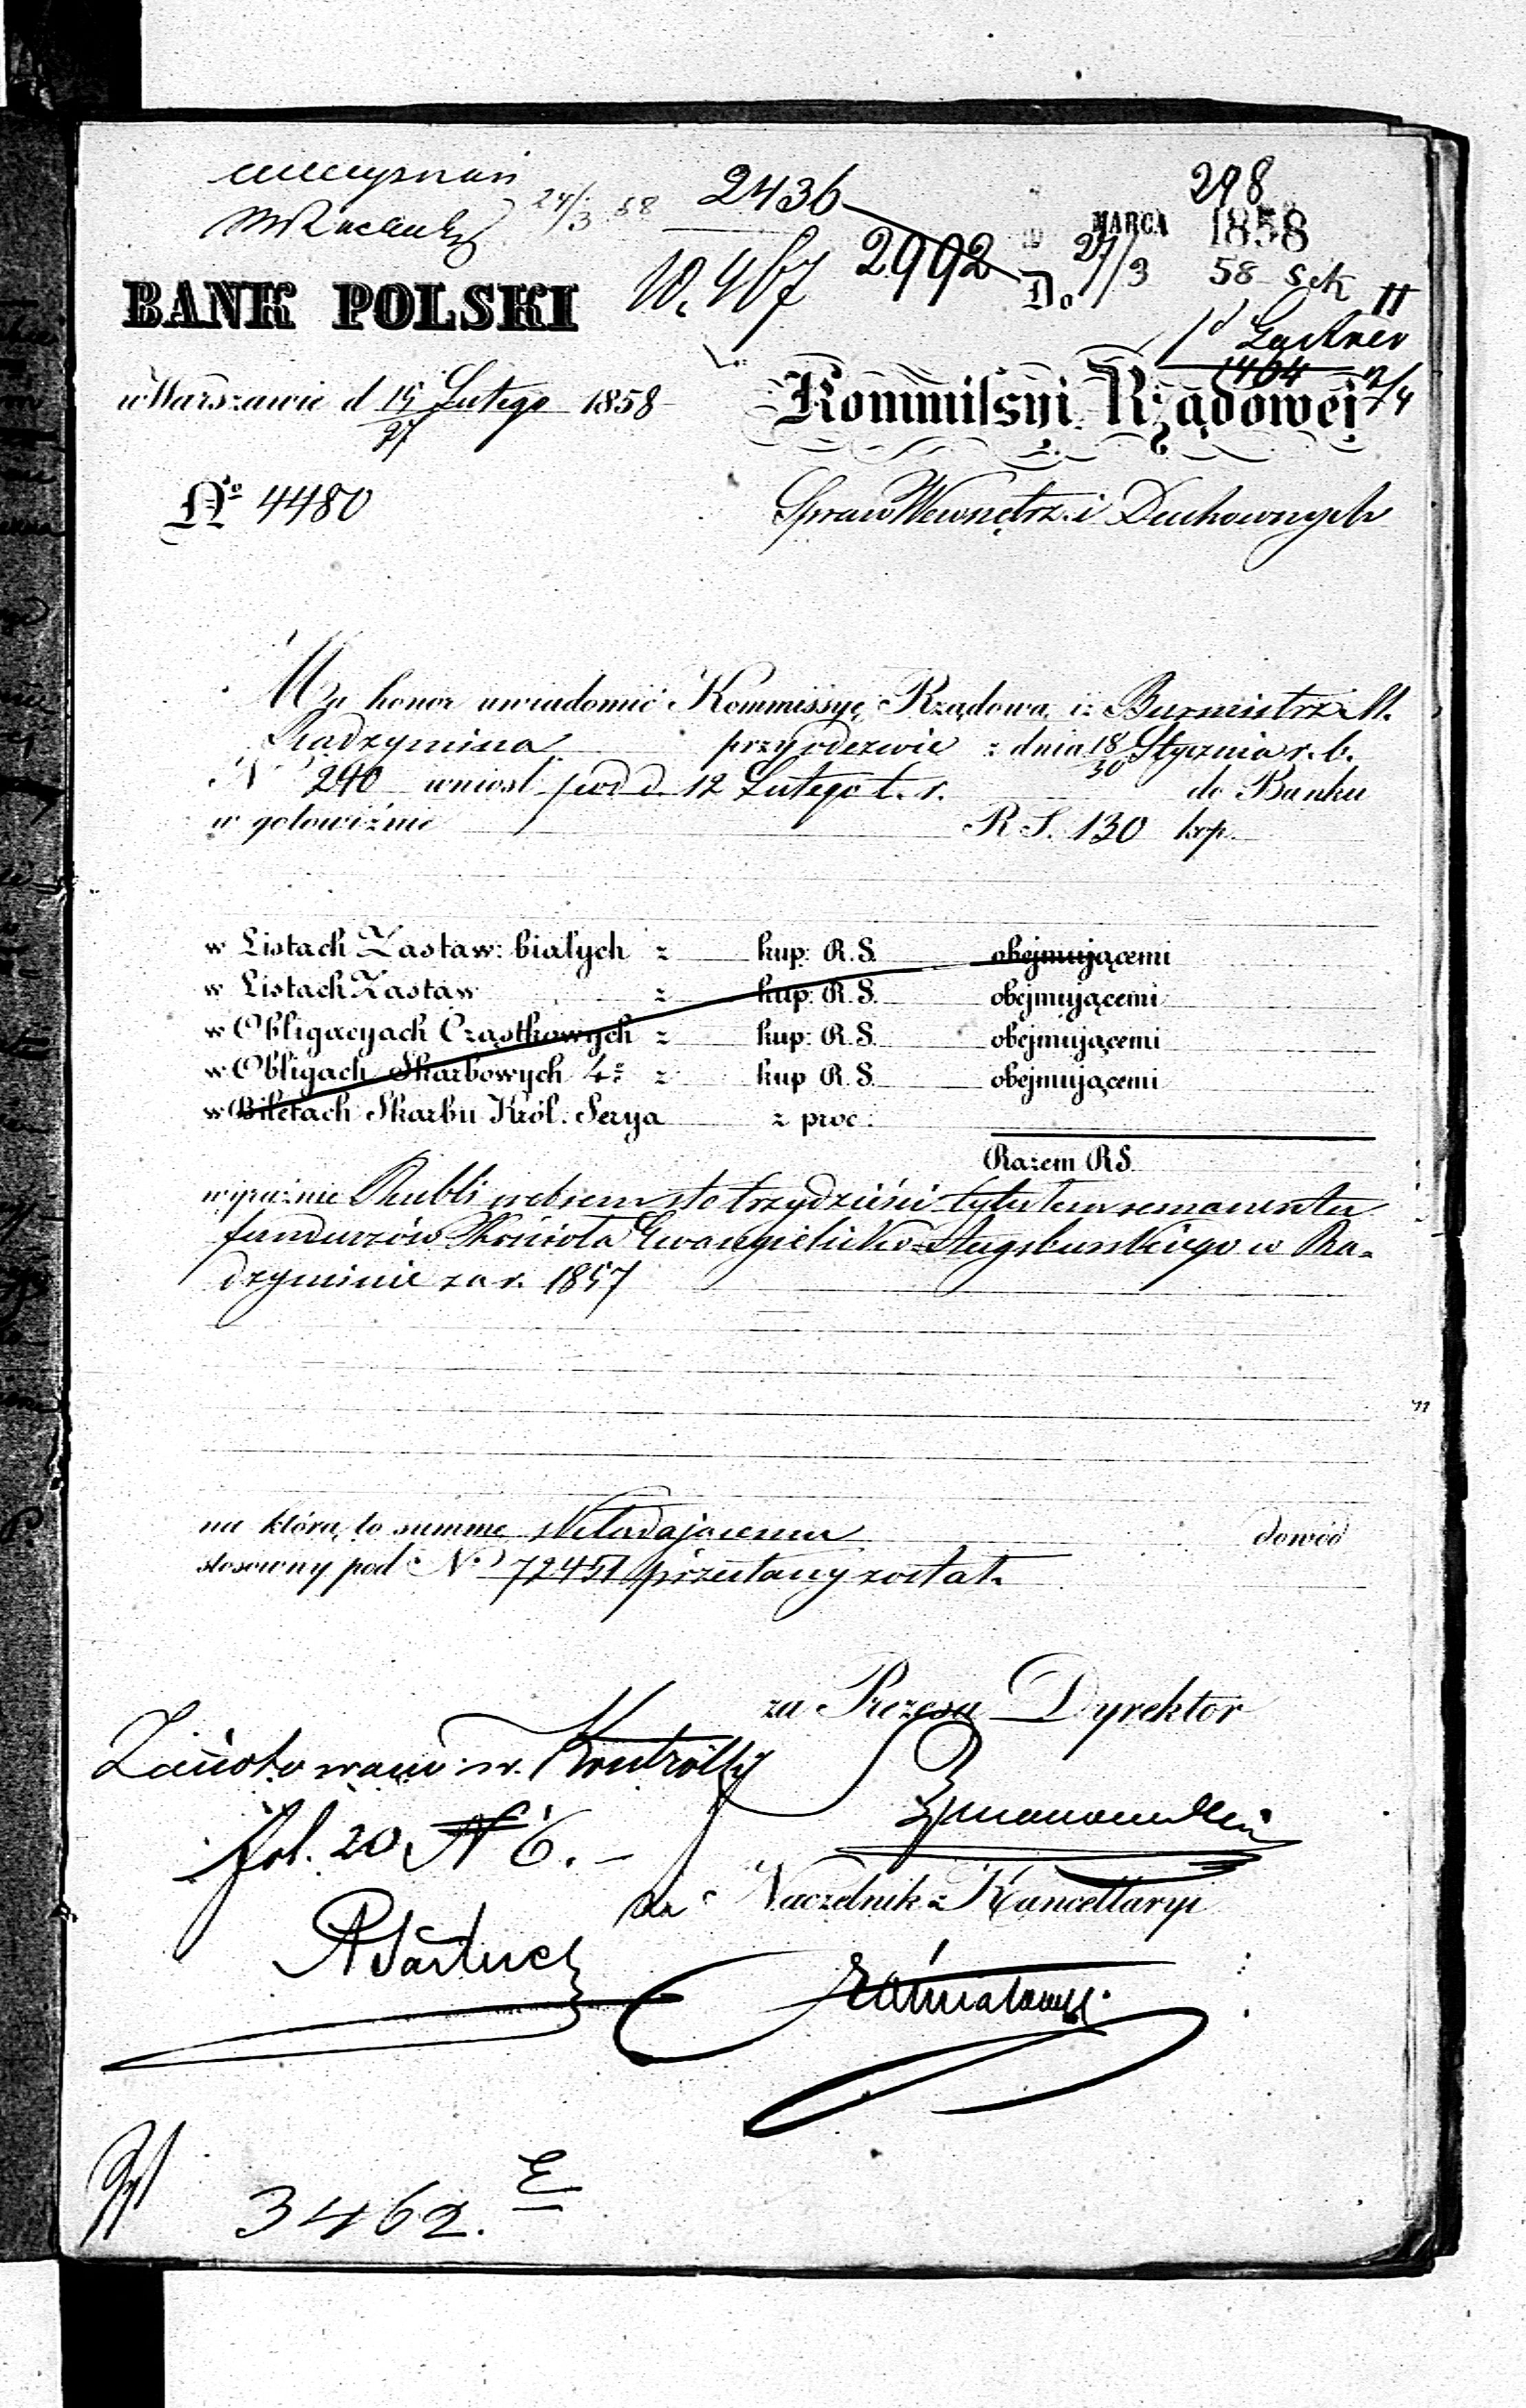 298
2436
24/3 58
MARCA 1858
2992
27/3 58 Sek
W. 467
Do
II
BANK POLSKI
1464
2/4
w Warszawie d 15/27 Lutego 1858
Kommissyi Rządowej
No 4480
Spraw Wewnętrz. i Duchownych
Ma honor uwiadomić Kommissyę Rządową iż Burmistrz M.
Radzymina przy odezwie z dnia 18/30 Stycznia r. b.
N 240 wniósł pod d. 12 Lutego t. r. do Banku
w gotowiźnie R S. 130 kop.
w Listach Zastaw: białych z kup: R. S. obejmującemi
w Listach Zastaw z kup: R. S. obejmującemi
w Obligacyach Cząstkowych z kup: R. S. obejmującemi
w Obligach Skarbowych 4% z kup R. S. obejmującemi
w Biletach Skarbu Król. Serya z proc:
Razem RS.
wyraźnie Rubli srebrem sto trzydzieści tytułem remanentu
funduszów Kościoła Ewangielicko-Augsburskiego w Ra-
dzyminie za r. 1857
na którą to summę składającemu dowód
stosowny pod No 72451 przesłany został.
za Prezesa Dyrektor
Zanotowano w Kontrolli
fol. 20 N 6.
za Naczelnik Kancellaryi
3462. E